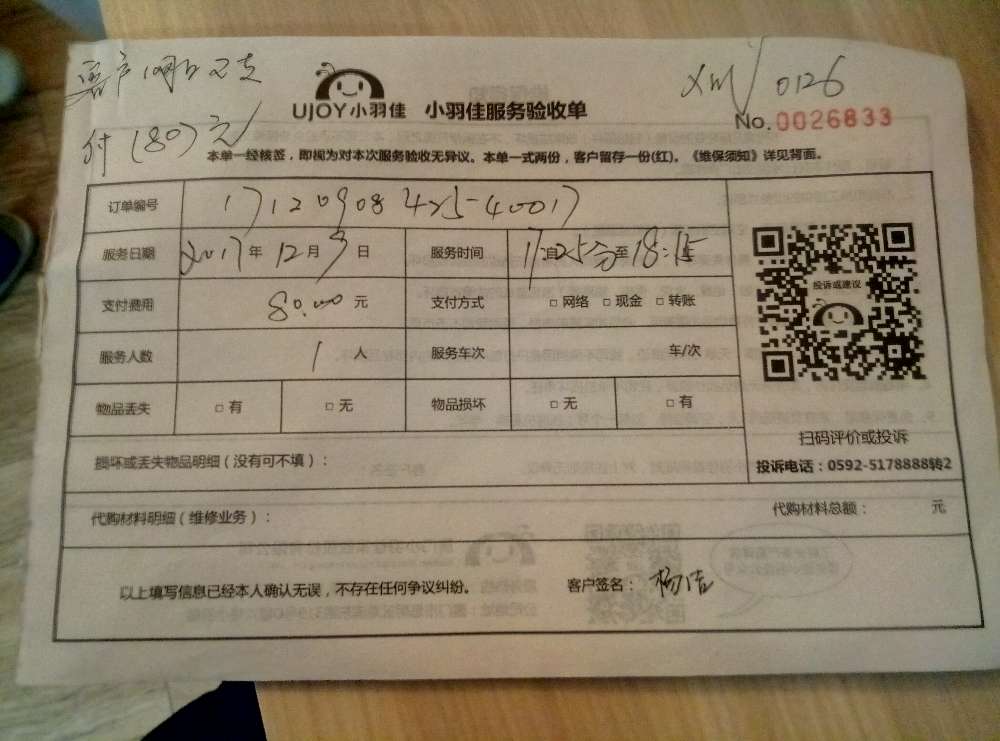 客户网上已支
付(80)元
XM/0126
UJOY小羽佳 小羽佳服务验收单
No.0026833
本单一经核签，即视为对本次服务验收无异议。本单一式两份，客户留存一份(红)。《维保须知》详见背面。
订单编号 17120908425-40017
服务日期 2017年12月9日 服务时间 17:25分至18:15
支付费用 80.00元 支付方式 □网络 □现金 □转账
服务人数 1人 服务车次 车/次
物品丢失 □有 □无 物品损坏 □无 □有
投诉或建议
扫码评价或投诉
投诉电话：0592-5178888转2
损坏或丢失物品明细（没有可不填）：
代购材料明细（维修业务）： 代购材料总额： 元
以上填写信息已经本人确认无误，不存在任何争议纠纷。 客户签名：杨洁